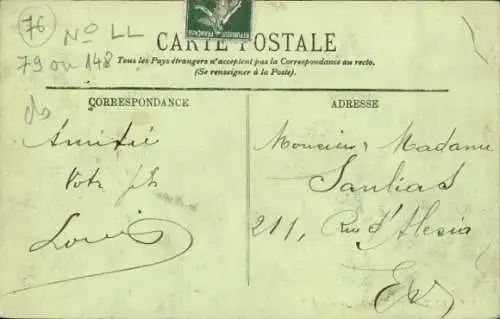 76
Nº LL
79 ou 148
CARTE POSTALE
Tous les Pays étrangers n'acceptent pas la Correspondance au recto.
(Se renseigner à la Poste.)
CORRESPONDANCE
ADRESSE
Amitié
Votre fils
Louis
Monsieur, Madame
Sanlias
211, Rue d'Alesia